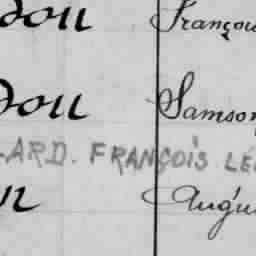 don Françou
don Samson
LARD. FRANÇOIS LÉ
n Augu